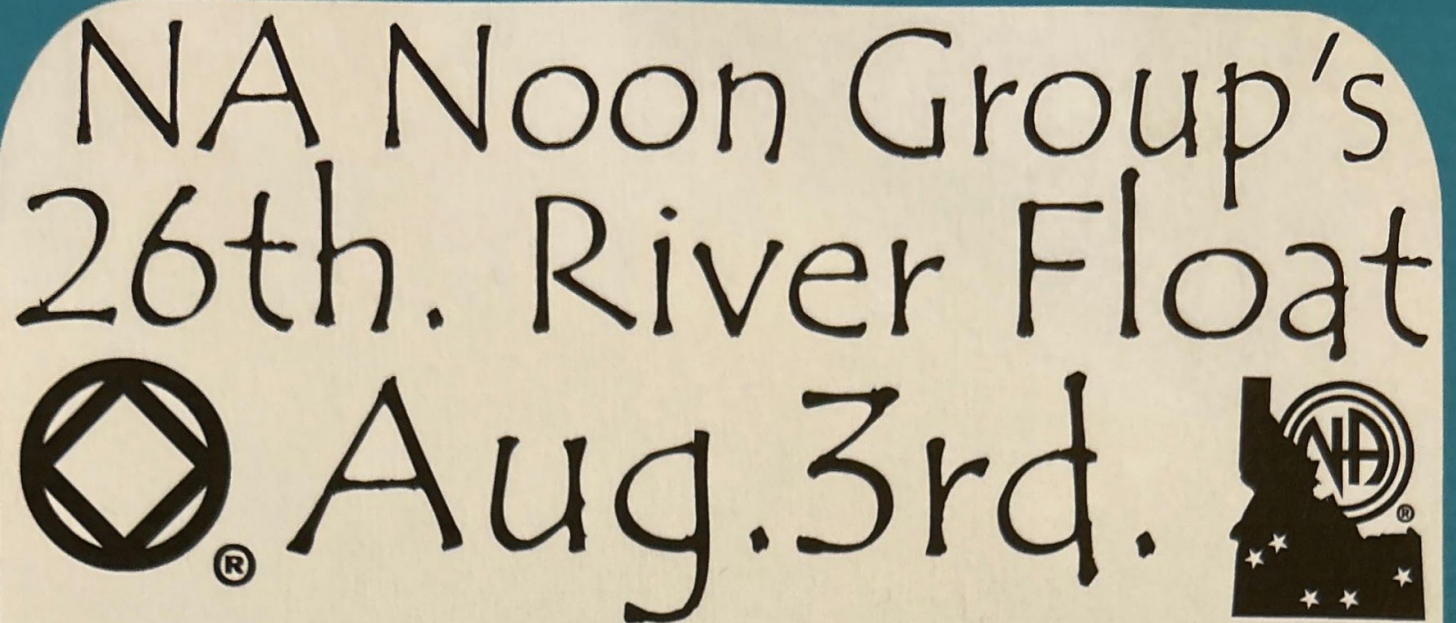 NA Noon Group's
26th. River Float
Aug.3rd.
NA
®
®